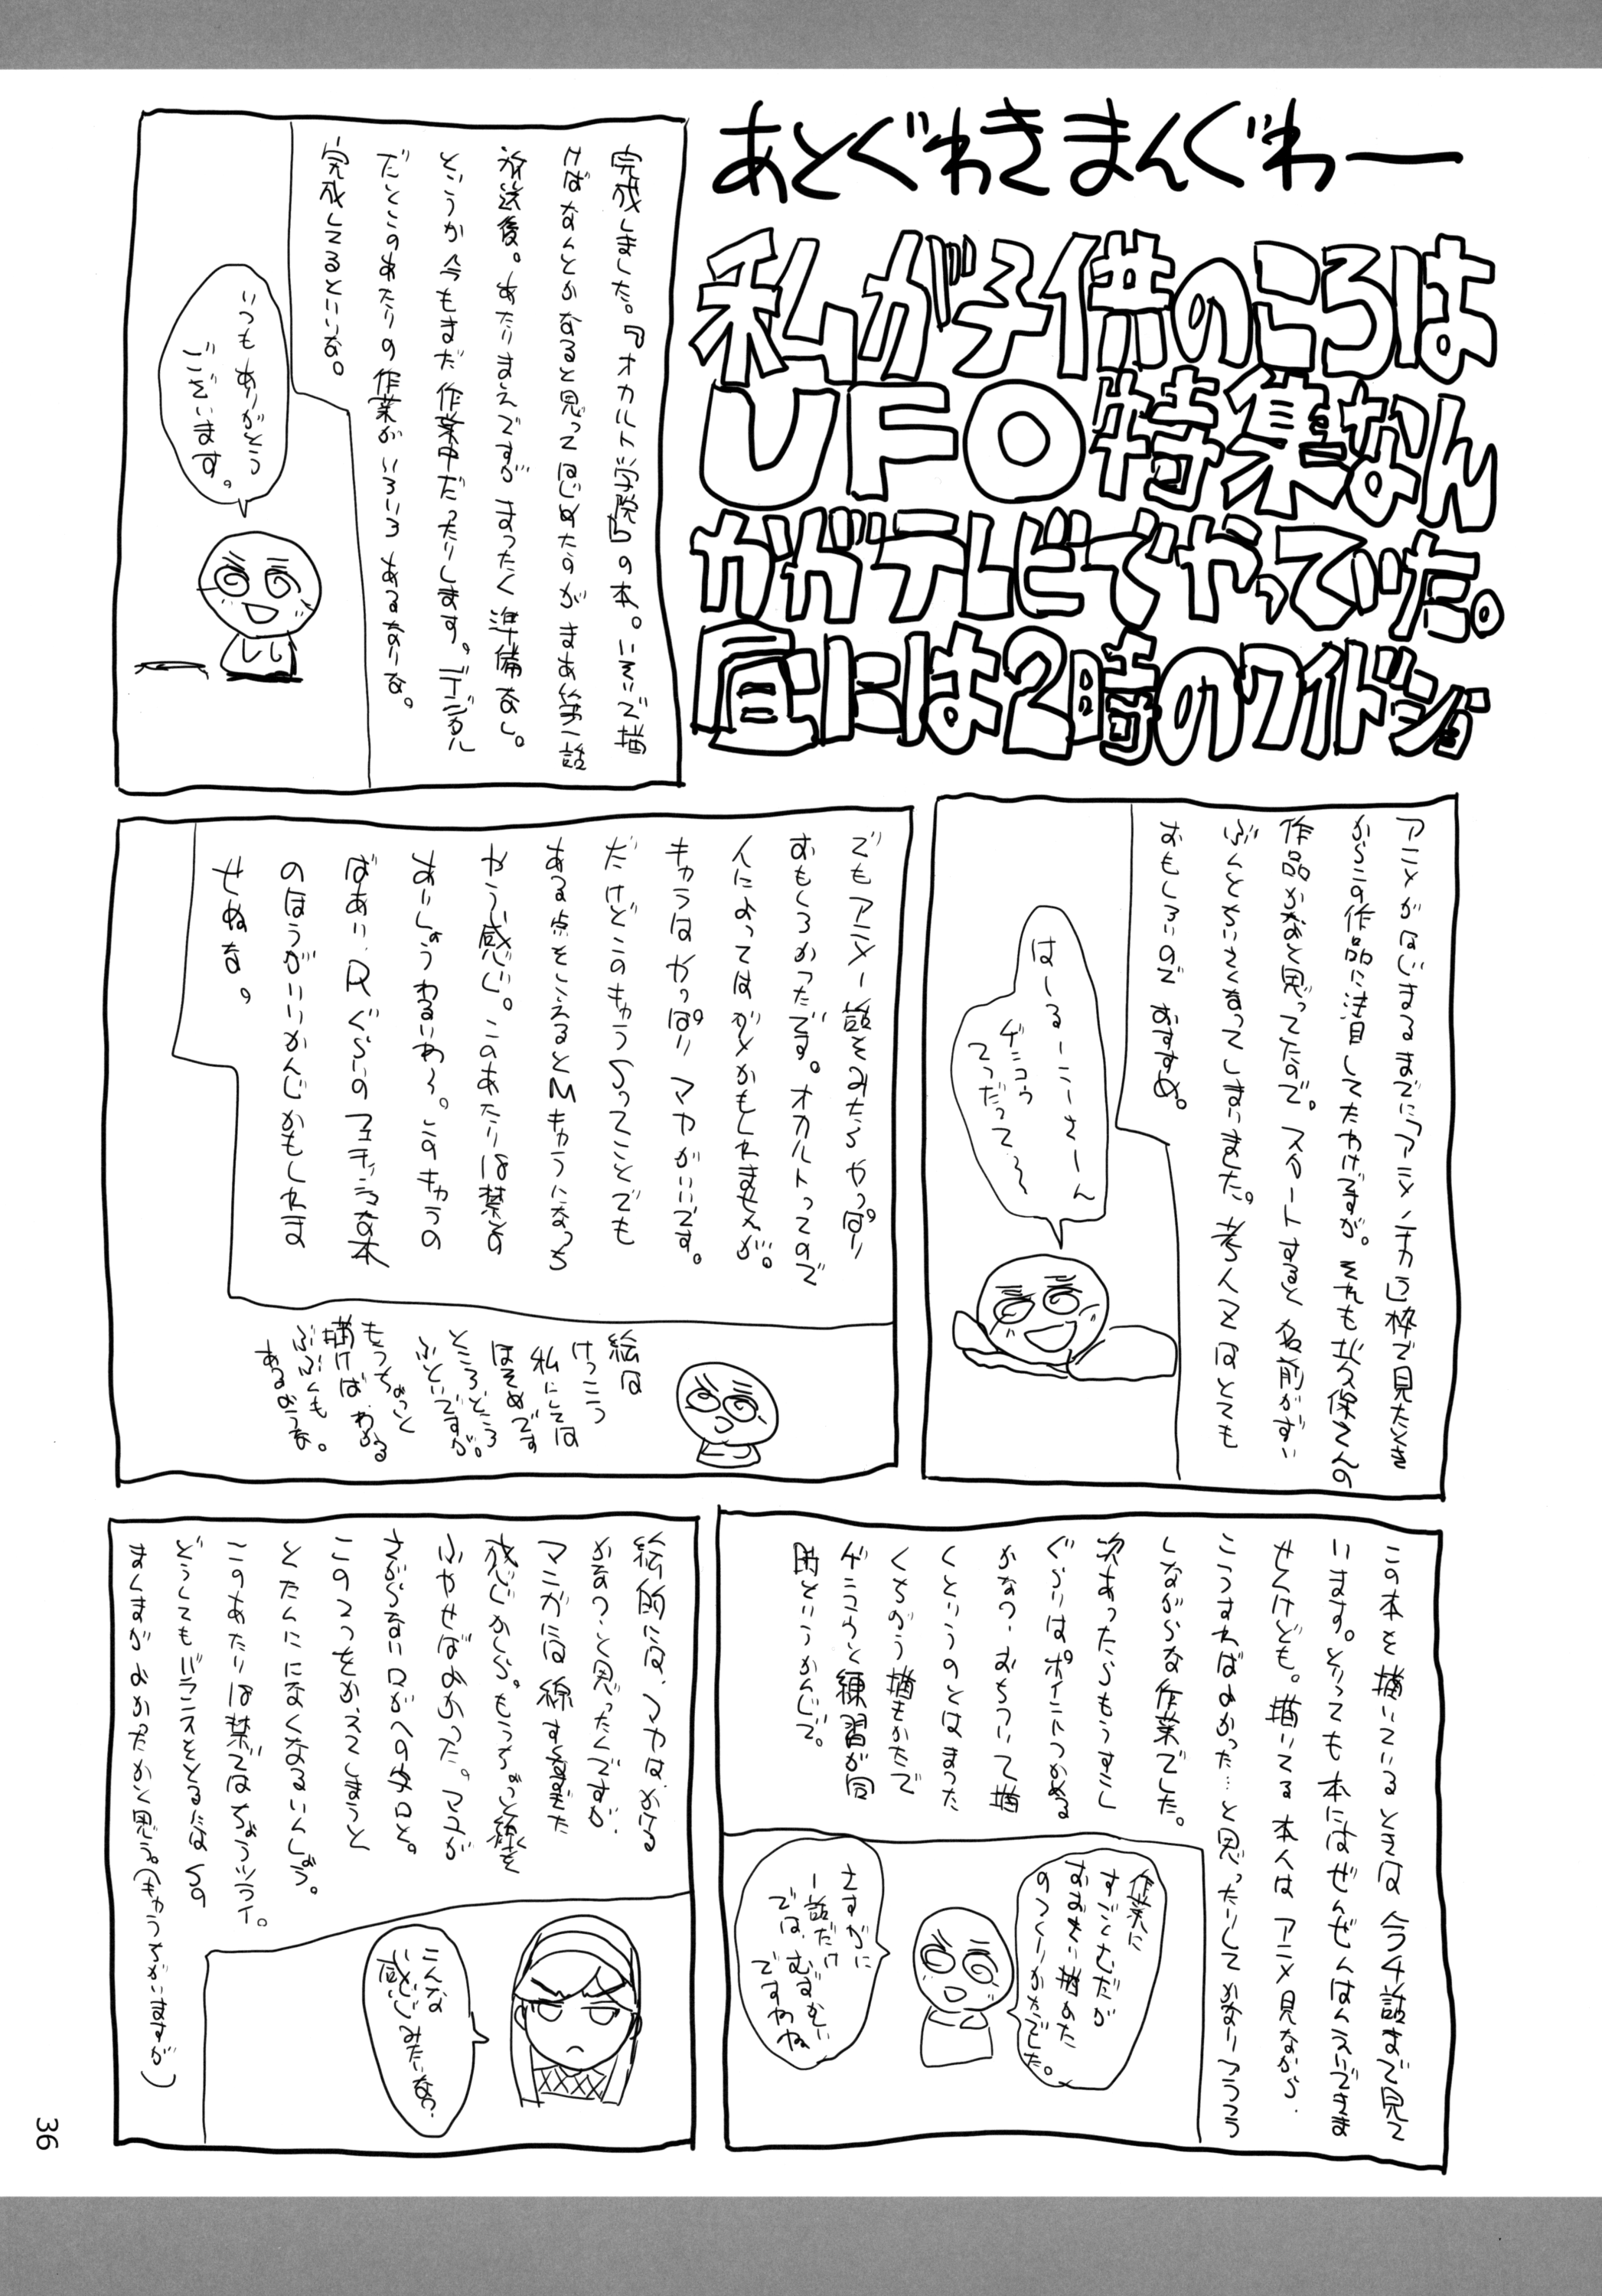 あとぐわきまんぐわー
私が子供のころは
UFO特集なん
かがテレビでやっていた。
昼には2時のワイドショ
完成しました。『オカルト学院』の本。いそいで描
けばなんとかなると思ってはじめたのが まあ第一話
放送後。あたりまえですが まったく準備なし。
というか今もまだ作業中だったりします。デジタル
だとこのあたりの作業がいろいろ あるなりな。
完成してるといいな。
いつもありがとう
ございます。
アニメがはじまるまでに『アニメノチカラ』枠で見たとき
からこの作品に注目してたわけですが。それも
作品かなあと思ってたので。スタートすると名前がずい
ぶんとちいさくなってしまいました。
おもしろいので おすすめ。
はーるーこーさーん
ゲンコウ
てつだって〜
でもアニメ1話をみたらやっぱり
おもしろかったです。オカルトってので
人によってはダメかもしれませんが。
キャラはやっぱり マヤがいいです。
だけどこのキャラSってことでも
ある点をこえるとMキャラになっち
やう感じ。このあたりは禁その
ありしょうわるいわ〜。このキャラの
ばあい、Rぐらいのフェチっぽな本
のほうがいいかんじかもしれま
せぬな。
絵は
けっこう
私にしては
ほそめです
ところどころ
ふといですが。
もうちょっと
描けば、わかる
ぶぶんも
あるような。
この本を描いているときは 今4話まで見て
います。とっても本にはぜんぜんはんえいできま
せんけども。描いてる本人は アニメ見ながら、
こうすればよかった…と思ったりして かなりアラララ
しながらな作業でした。
次あったらもうすこし
ぐらいはポイントつかめる
かなの。おちついて描
くというのとはまった
くちがう描きかたで
ゲンコウと練習が同
時というかんじで。
作業に
すごくむだが
おおきい描めた
のつくりかたでした。
さすがに
1話だけ
では、むずかしい
ですわね
絵的には、マヤは、かける
かなの〜と思ったんですが、
マンガには線すくなすぎた
感じかしら。もうちょっと線を
ふやせばよかった。マユが
さがらないロがへの字ロと。
この2つをかえてしまうと
とたんにになくなるいんしょう。
このあたりは禁ではちょうツライ。
どうしてもバランスをとるにはSの
まんまがよかったかと思う。(キャラちがいますが)
こんな
感じみたいな?
36